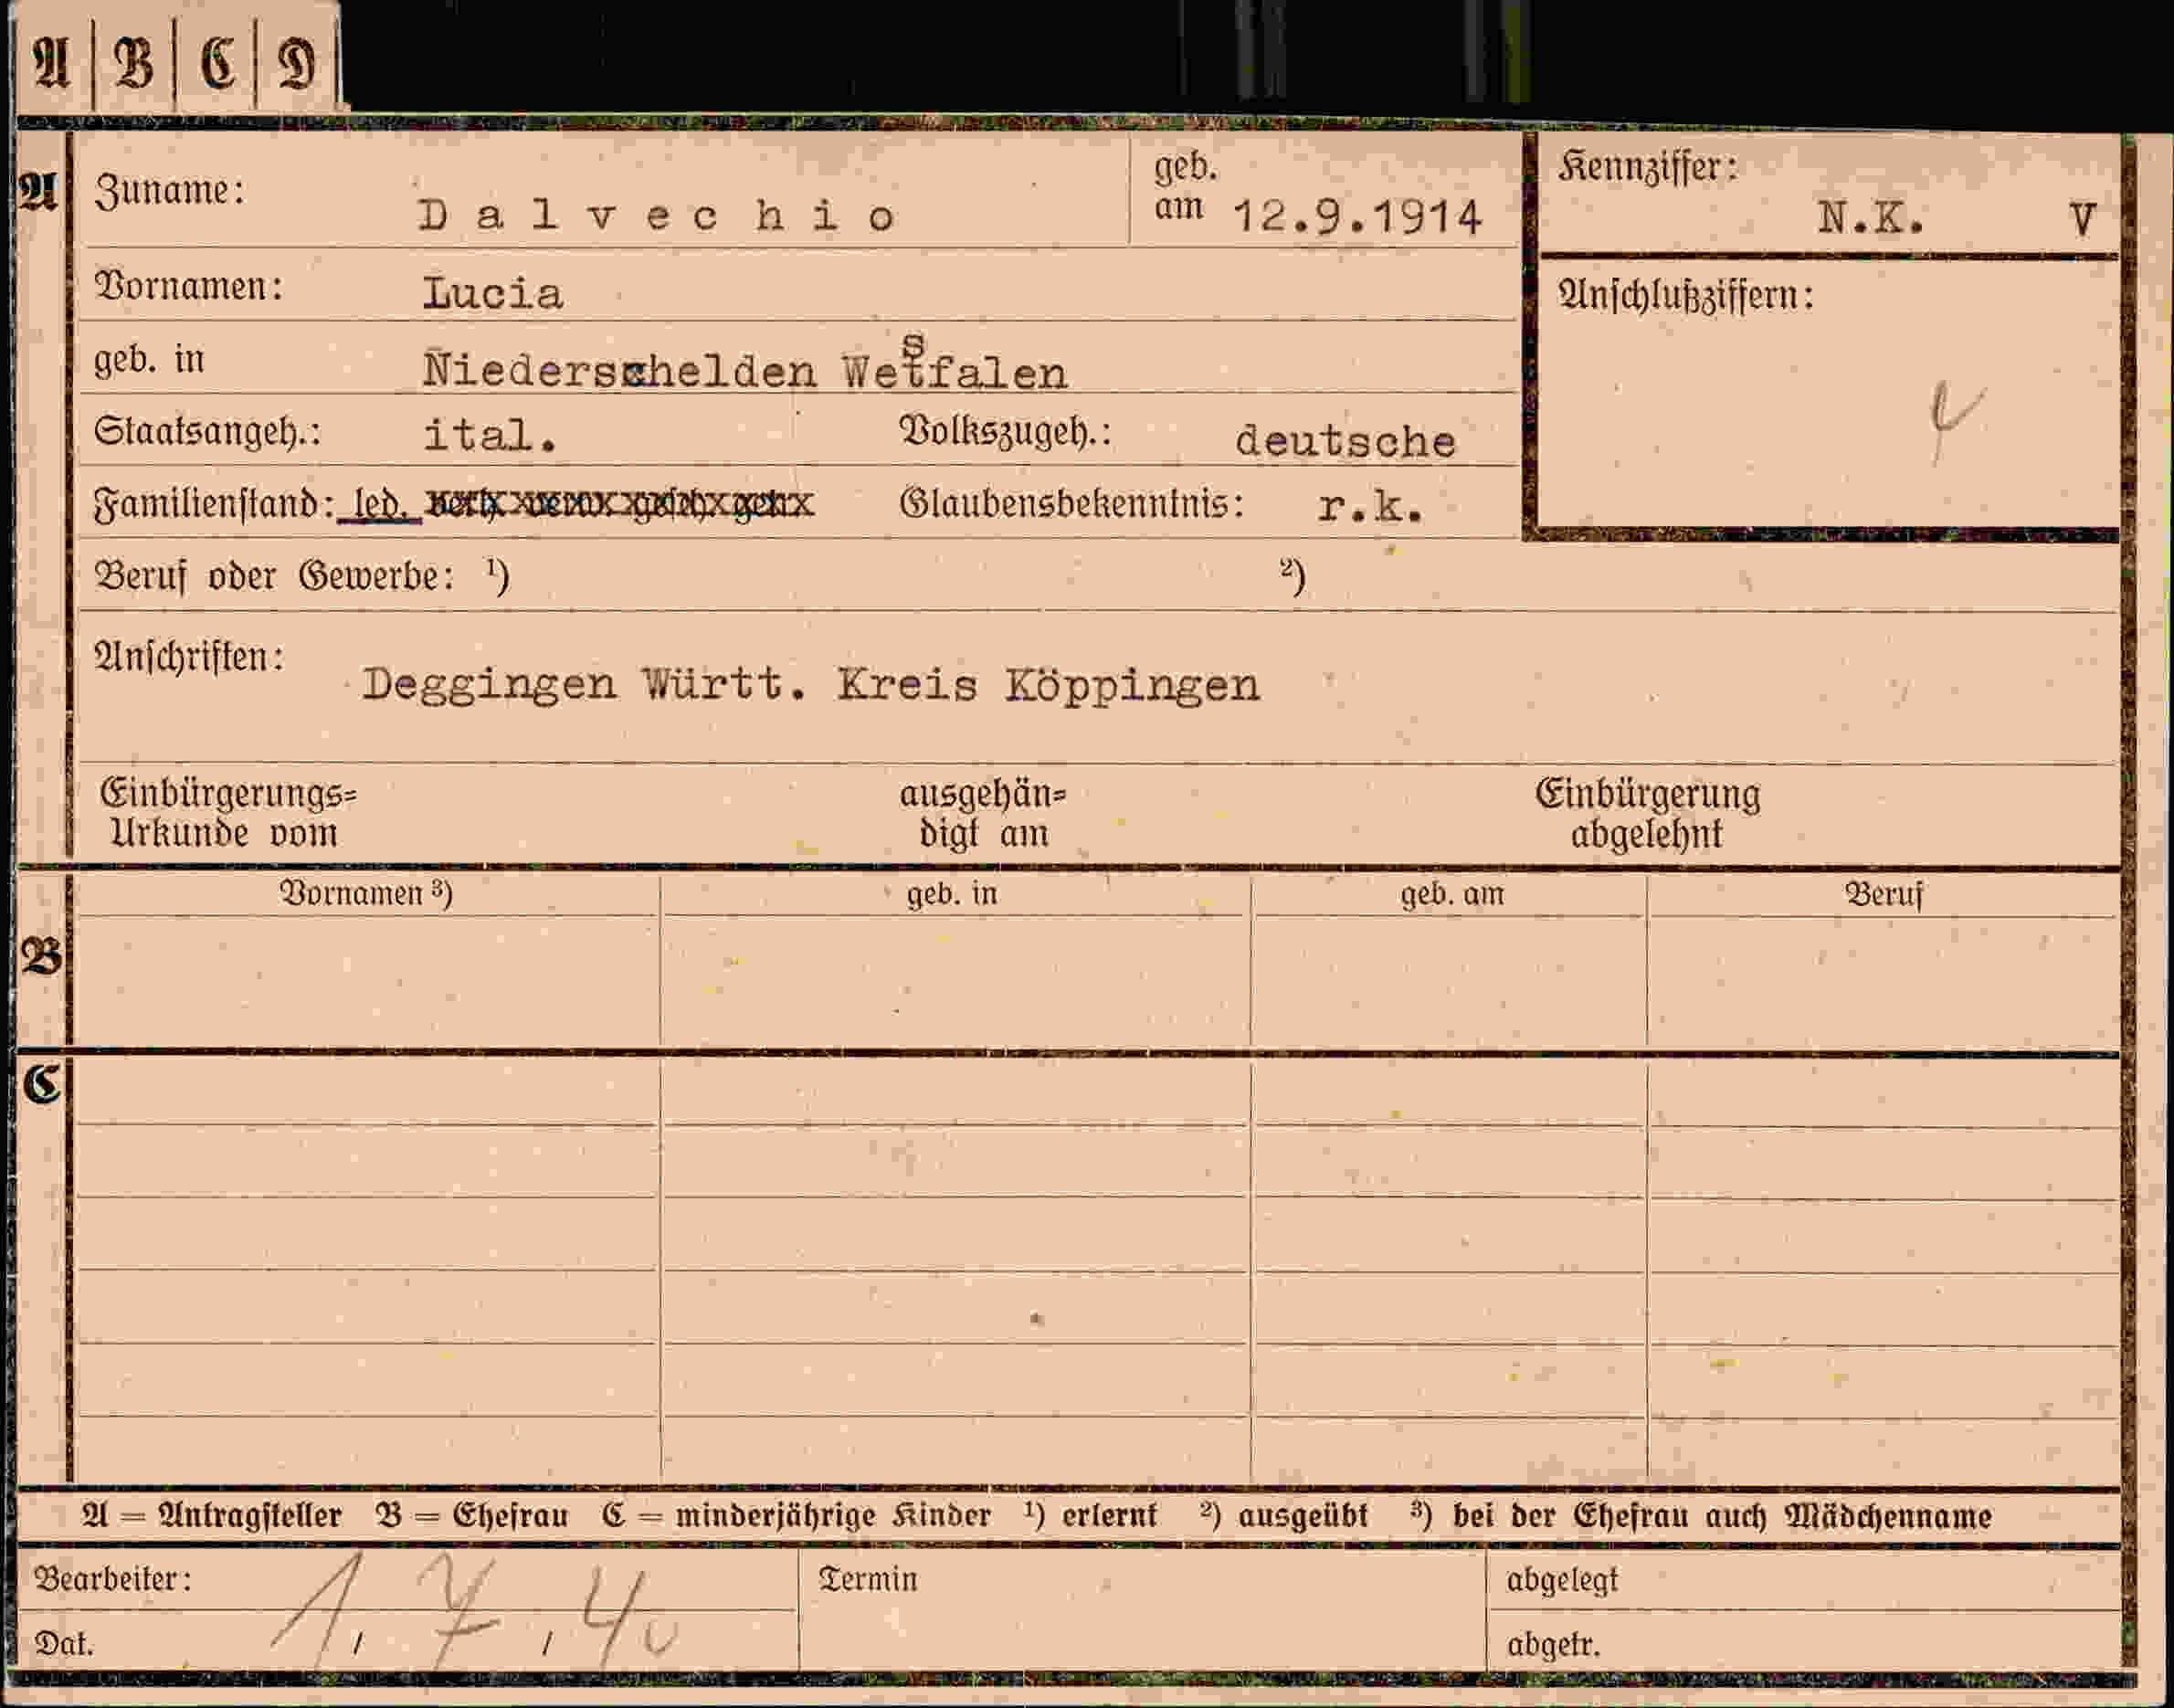 A B C D
A Zuname: Dalvechio geb. am 12.9.1914 Kennziffer: N.K. V
Vornamen: Lucia
Anschlußziffern:
geb. in Niederschelden Westfalen
Staatsangeh.: ital. Volkszugeh.: deutsche
Familienstand: led. Glaubensbekenntnis: r.k.
Beruf oder Gewerbe: ¹) ²)
Anschriften: Deggingen Württ. Kreis Köppingen
Einbürgerungs= ausgehän= Einbürgerung
Urkunde vom digt am abgelehnt
Vornamen ³) geb. in geb. am Beruf
B
C
A = Antragsteller B = Ehefrau C = minderjährige Kinder ¹) erlernt ²) ausgeübt ³) bei der Ehefrau auch Mädchenname
Bearbeiter: Termin abgelegt
Dat. 1, 7, 40 abgetr.